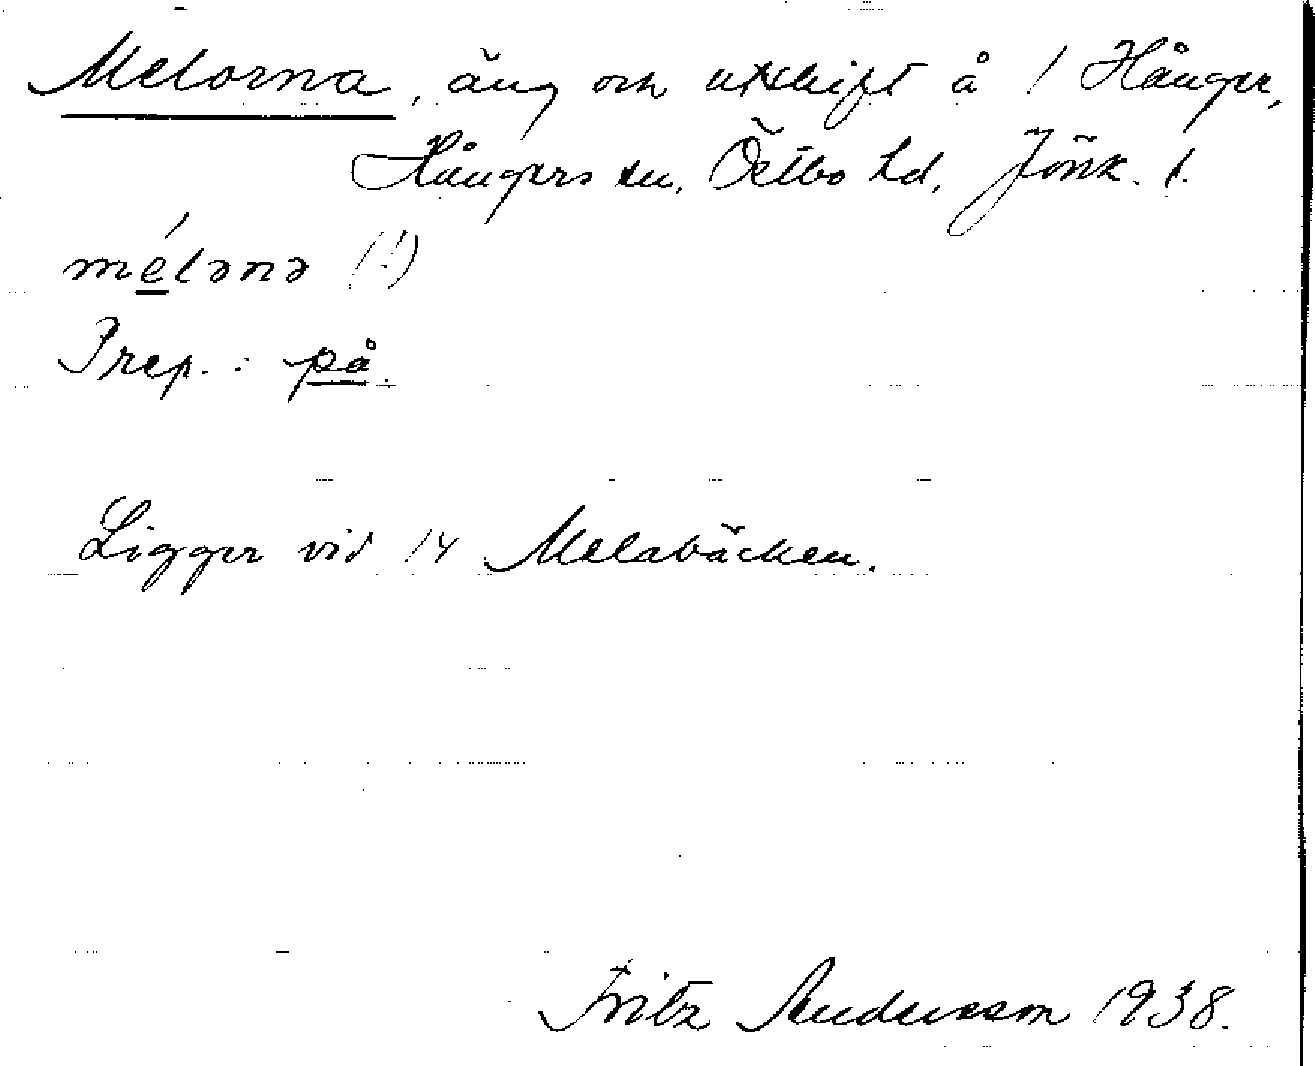 Melorna, äng och utskift å 1 Hånger,
Hångers sn, Östbo hd, Jönk. l.
mélənə (!)
Prep.: på.
Ligger vid 14 Melabäcken.
Fritz Andersson 1938.